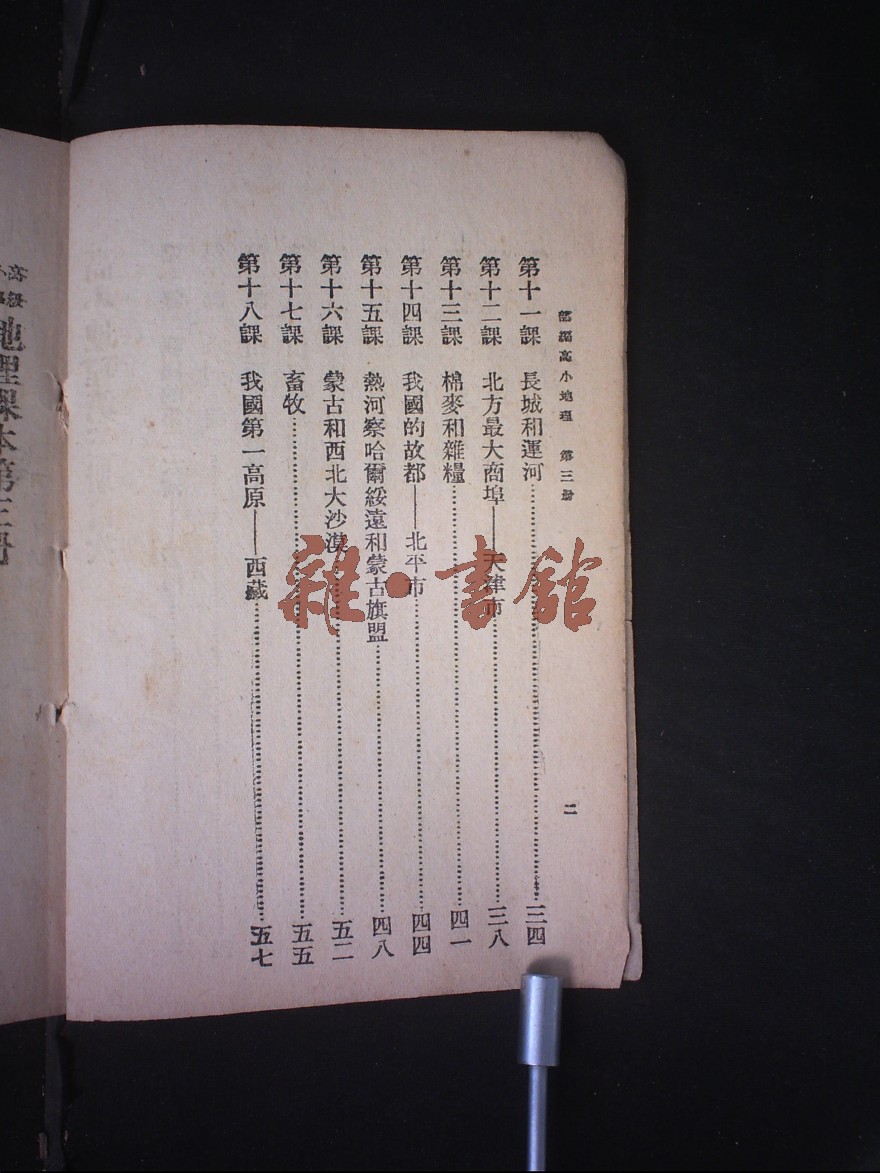 部編高小地理 第三册 二
第十一課 長城和運河……三四
第十二課 北方最大商埠——天津市……三八
第十三課 棉麥和雜糧……四一
第十四課 我國的故都——北平市……四四
第十五課 熱河察哈爾綏遠和蒙古旗盟……四八
第十六課 蒙古和西北大沙漠……五二
第十七課 畜牧……五五
第十八課 我國第一高原——西藏……五七
雜·書館
高級
小學
地理課本第三册